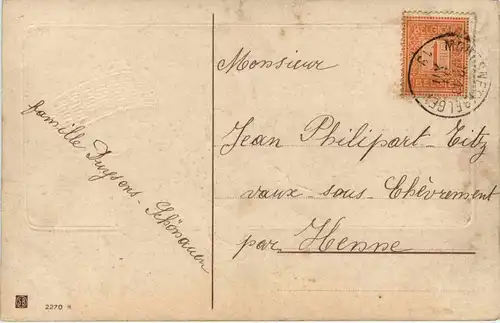 famille Duysens - Schönauen
Monsieur
Jean Philipart-Titz
vaux-sous-Chèvremont
par Henne
1
2270